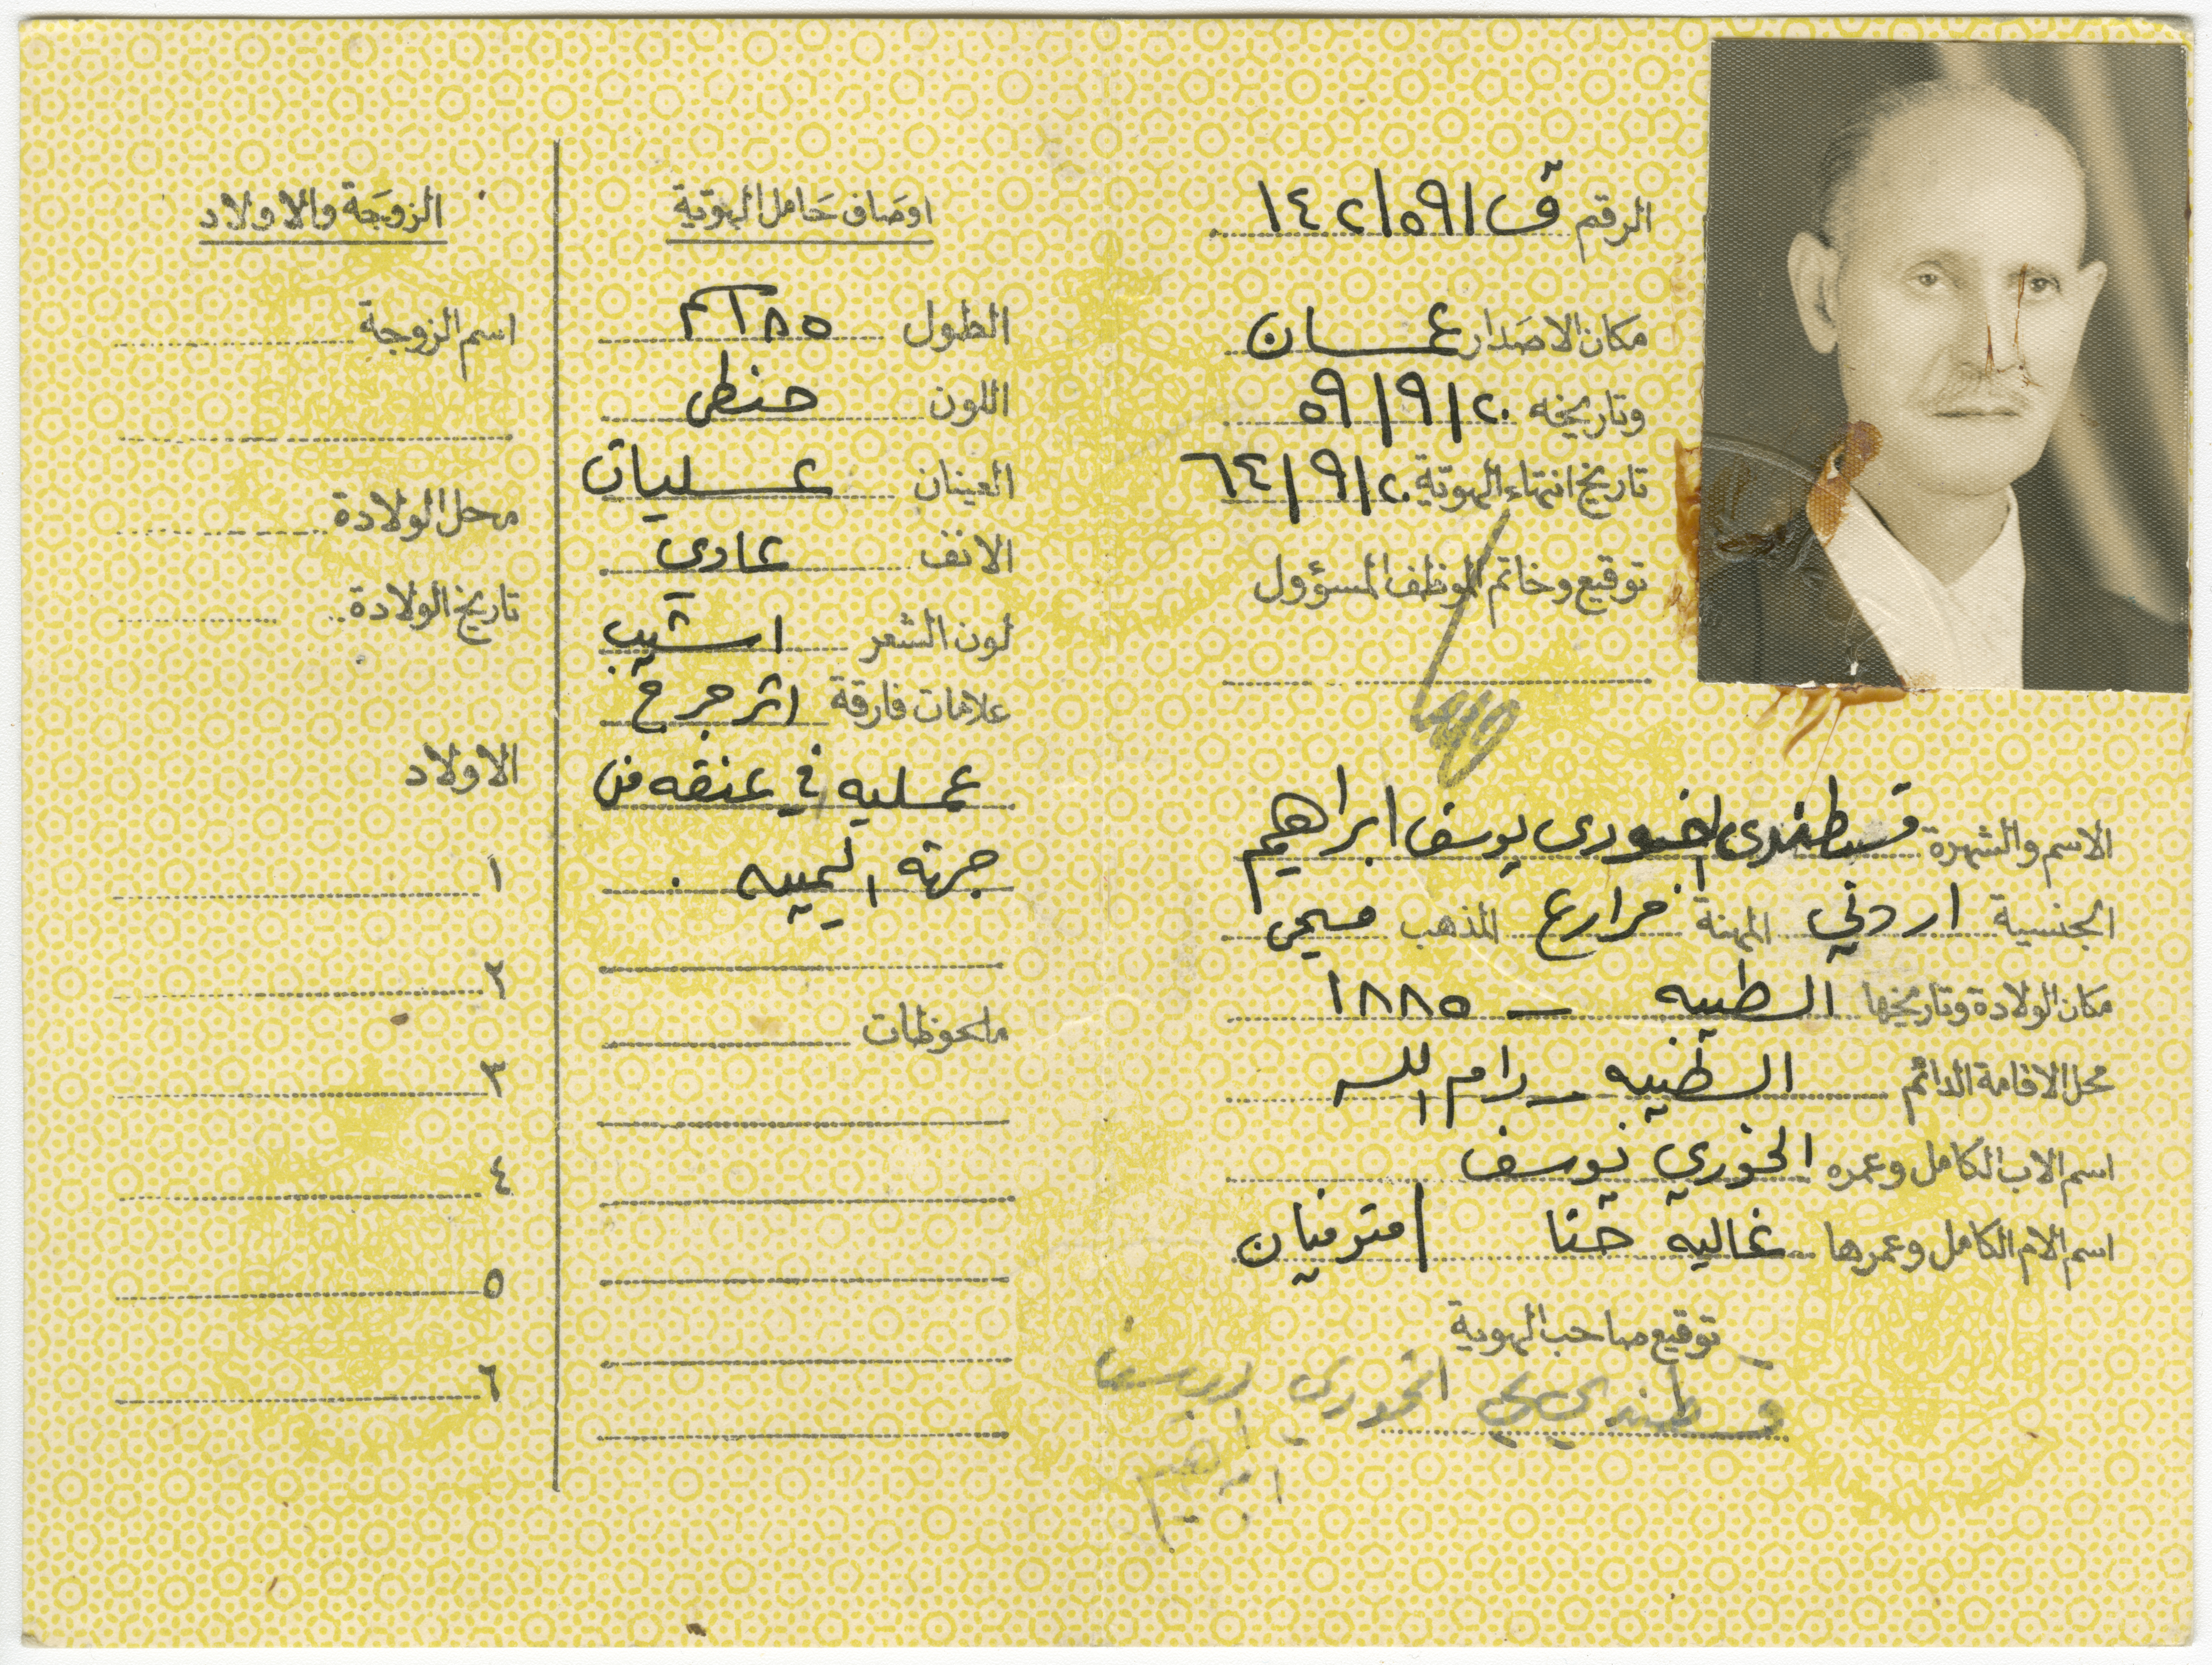 الرقم ق ١٤٢/٥٩١
مكان الاصدار عمان
وتاريخه ٢٠/٩/٥٩
تاريخ انتهاء الهوية ٢٠/٩/٦٤
توقيع وخاتم الموظف المسؤول
الاسم والشهرة قسطندي الخوري يوسف ابراهيم
الجنسية اردني المهنة مزارع المذهب مسيحي
مكان الولادة وتاريخها الطيبه – ١٨٨٥
محل الاقامة الدائم الطيبه – رام الله
اسم الاب الكامل وعمره الخوري يوسف
اسم الام الكامل وعمرها غاليه حنا / متوفيان
توقيع صاحب الهوية
قسطندي الخوري يوسف
ابراهيم
اوصاف حامل الهوية
الطول
اللون حنطي
العينان عسليات
الانف عادي
لون الشعر اشيب
علامات فارقة اثر جرح
عمليه في عنقه من
جهته اليمينه
ملحوظات
الزوجة والاولاد
اسم الزوجة
محل الولادة
تاريخ الولادة
الاولاد
١
٢
٣
٤
٥
٦